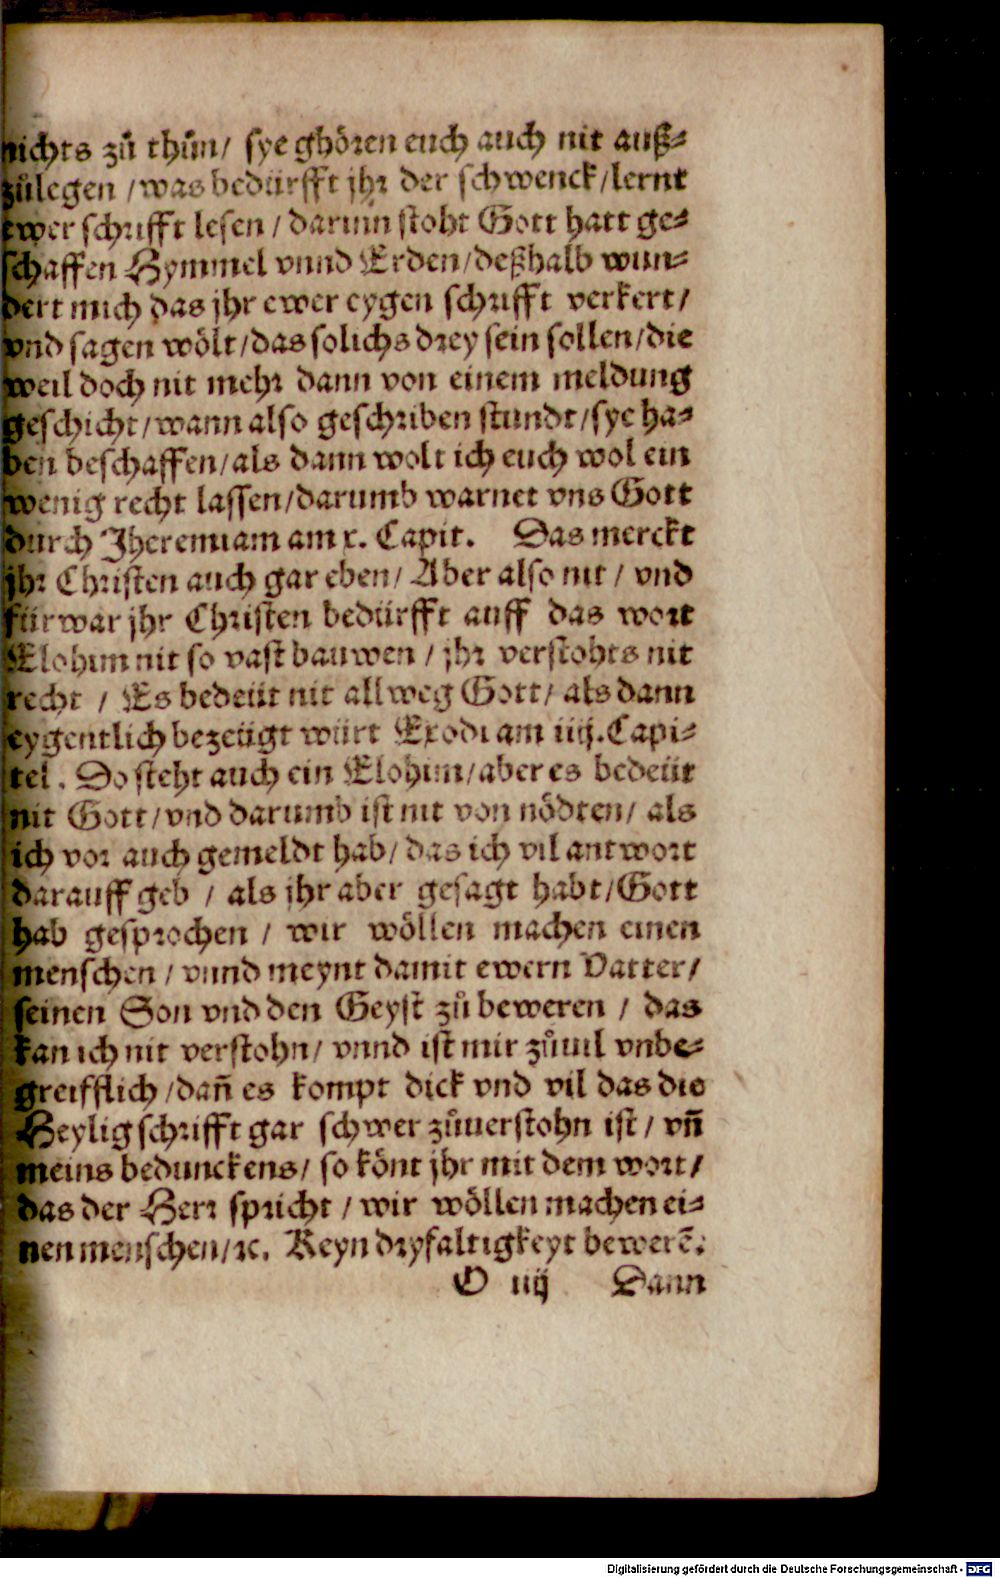 nichts zů thůn/ sye ghören euch auch nit auß⸗
zůlegen /was bedürfft jhr der schwenck/lernt
ewer schrifft lesen / darinn stoht Gott hatt ge⸗
schaffen Hymmel vnnd Erden/deßhalb wun⸗
dert mich das jhr ewer eygen schrifft verkert/
vnd sagen wölt/das solichs drey sein sollen/die
weil doch nit mehr dann von einem meldung
geschicht/wann also geschriben stundt/sye ha⸗
ben beschaffen/als dann wolt ich euch wol ein
wenig recht lassen/darumb warnet vns Gott
durch Jheremiam am x. Capit. Das merckt
jhr Christen auch gar eben/ Aber also nit / vnd
fürwar jhr Christen bedürfft auff das wort
Elohim nit so vast bauwen / jhr verstohts nit
recht / Es bedeüt nit allweg Gott/ als dann
eygentlich bezeügt würt Exodi am iiij.Capi⸗
tel. Do steht auch ein Elohim/aber es bedeüt
nit Gott/vnd darumb ist nit von nödten/ als
ich vor auch gemeldt hab/ das ich vil antwort
darauff geb / als jhr aber gesagt habt/Gott
hab gesprochen / wir wöllen machen einen
menschen / vnnd meynt damit ewern Vatter/
seinen Son vnd den Geyst zů beweren / das
kan ich nit verstohn/ vnnd ist mir zůuil vnbe⸗
greifflich /dañ es kompt dick vnd vil das die
Heylig schrifft gar schwer zůuerstohn ist / vñ
meins bedunckens/ so könt jhr mit dem wort/
das der Herr spricht / wir wöllen machen ei⸗
nen menschen/ꝛc. Keyn dryfaltigkeyt bewerẽ.
O iiij Dann
Digitalisierung gefördert durch die Deutsche Forschungsgemeinschaft - DFG